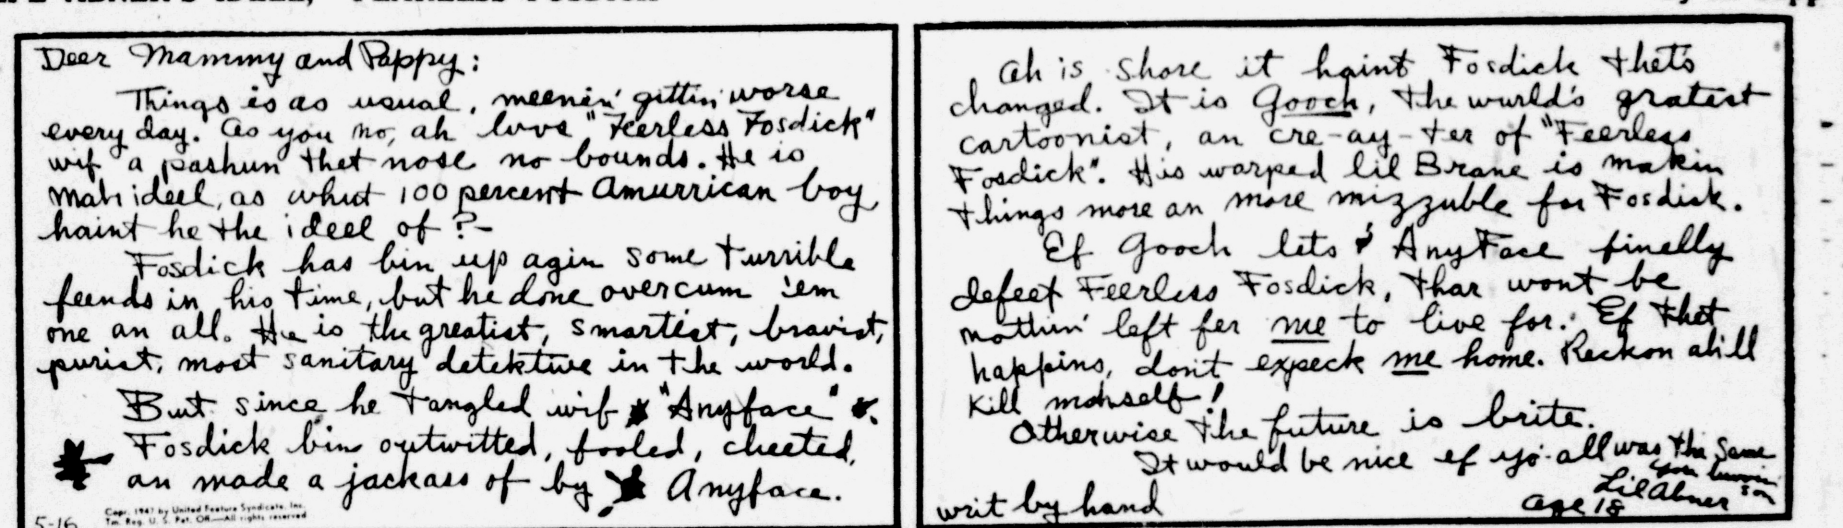 LI'L ABNER'S IDEEL, "FEARLESS FOSDICK"
Deer Mammy and Pappy:
Things is as usual, meenin' gittin' worse
every day. As you no, ah luvs "Feerless Fosdick"
wif a pashun thet nose no bounds. He is
mah ideel, as whut 100 percent Amurrican boy
haint he the ideel of?-
Fosdick has bin up agin some turrible
feends in his time, but he done overcum 'em
one an all. He is the greatist, smartist, bravist,
purist, most sanitary detektive in the world.
But since he tangled wif "Anyface"
Fosdick bin outwitted, fooled, cheeted,
an made a jackass of by Anyface.
5-16
Copr. 1947 by United Feature Syndicate, Inc.
Tm. Reg. U. S. Pat. Off.—All rights reserved
Ah is shore it haint Fosdick thet's
changed. It is Gooch, the wurld's gratest
cartoonist, an cre-ay-ter of "Feerless
Fosdick". His warped lil Brane is makin
things more an more mizzuble for Fosdick.
Ef Gooch lets AnyFace finelly
defeet Feerless Fosdick, thar wont be
nothin' left fer me to live for. Ef thet
happins, don't expeck me home. Reckon ah'll
Kill mahself!
Otherwise the future is brite.
It would be nice ef yo'-all was the same
Your luvin' son
Li'l Abner
age 18
writ by hand